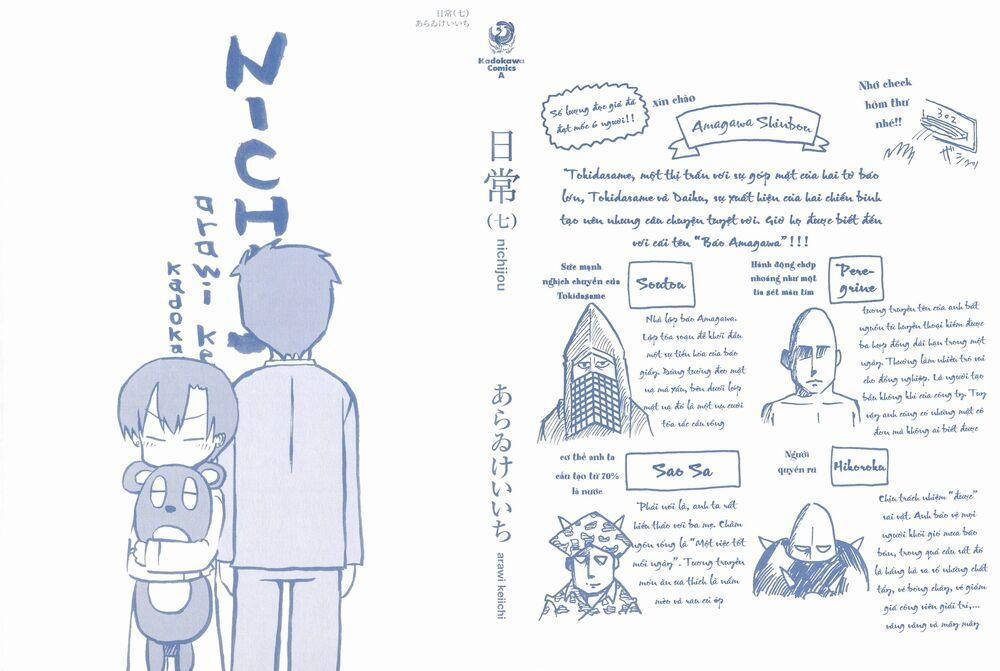 NICHIJ
arawi ke
Kadoka
日常(七)
あらゐけいいち
Kadokawa
Comics
A
日常
(七)
nichijou
あらゐけいいち
arawi keiichi
Số lượng độc giả đã
đạt mốc 6 người!!
xin chào
Amagawa Shinbou
Nhớ check
hòm thư
nhé!!
302
"Tokidasame, một thị trấn với sự góp mặt của hai tờ báo
lớn, Tokidasame và Daiku, sự xuất hiện của hai chiến binh
tạo nên nhưng câu chuyện tuyệt vời. Giờ họ được biết đến
với cái tên "Báo Amagawa"!!!
Sức mạnh
nghịch chuyển của
Tokidasame
Soutou
Nhà lập báo Amagawa.
Lập tòa soạn để khơi đầu
một sự tiến hóa của báo
giấy. Đừng tưởng đeo mặt
nạ mà xấu, bên dưới lớp
mặt nạ đó là một nụ cười
tỏa sắc cầu vồng
Hành động chớp
nhoáng như một
tia sét màu tím
Pere-
grine
tương truyền tên của anh bắt
nguồn từ huyền thoại kiếm được
ba hợp đồng dài hạn trong một
ngày. Thường làm nhiều trò vui
cho đồng nghiệp. Là người tạo
bầu không khí của công ty. Tuy
vậy anh cũng có những mặt cô
đơn mà không ai biết được
cơ thể anh ta
cấu tạo từ 70%
là nước
Sao Sa
Phải nói là, anh ta rất
hiếu thảo với ba mẹ. Châm
ngôn sống là "Một việc tốt
mỗi ngày". Tương truyền
món ăn ưa thích là nấm
mèo và rau củ ép
Người
quyến rũ
Hikoroku
Chịu trách nhiệm "được"
sai vặt. Anh bảo vệ mọi
người khỏi gió mưa bão
bùn, trong quá cầu sắt đó
là hằng hà sa số những chất
tẩy, vé bóng chày, vé giảm
giá công viên giải trí,...
vâng vâng và mây mây